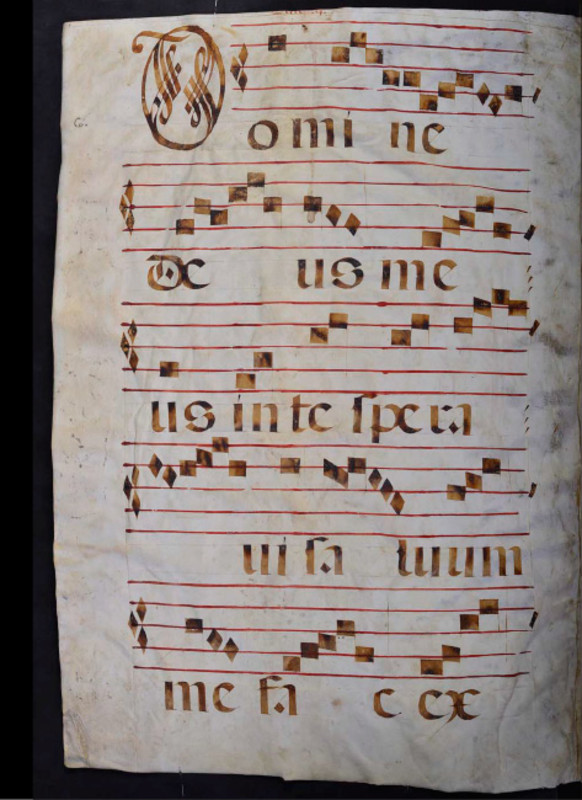 Domi ne
De us me
us in te spera
ui sa luum
me fa c ex